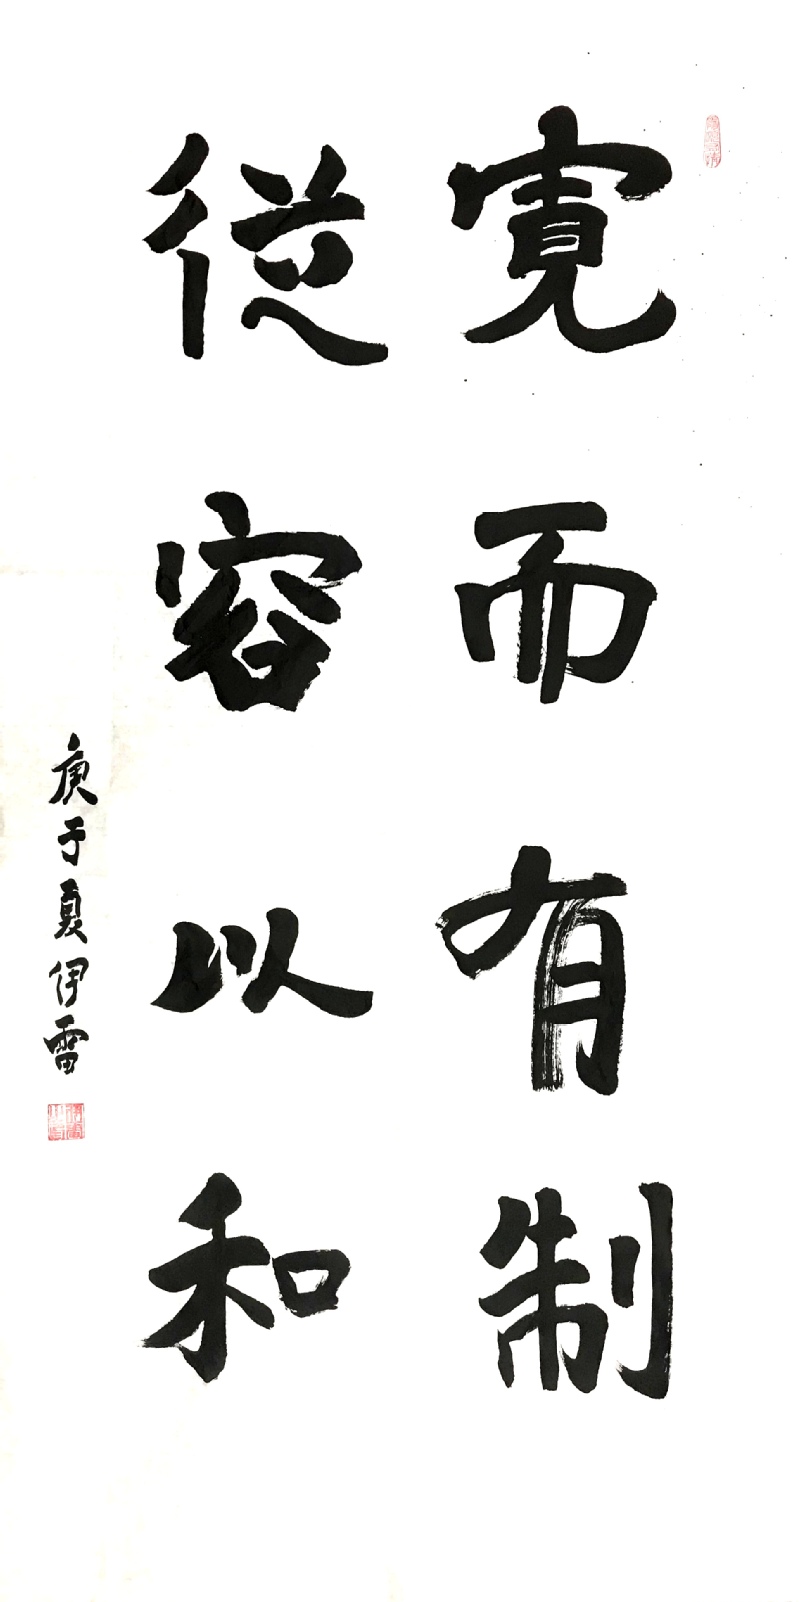 寬而有制
從容以和
庚子夏伊雷